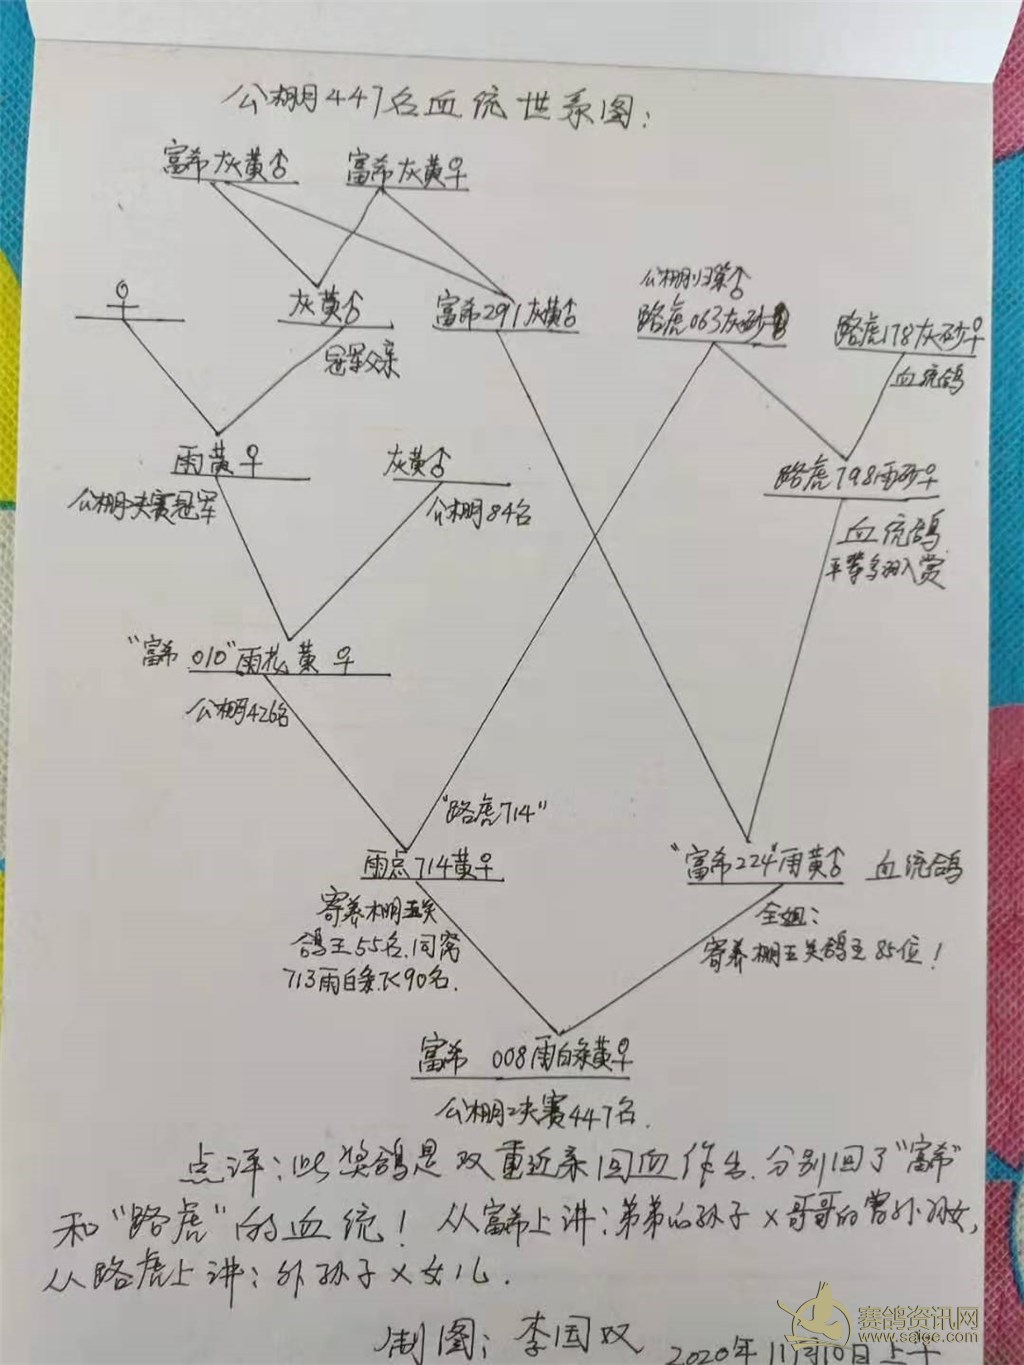 公棚447名血统世系图:
富希灰黄♂ 富希灰黄♀
公棚归巢♂
♀ 灰黄♂ 富希291灰黄♂ 路虎063灰砂 路虎178灰砂♀
冠军父亲 血统鸽
雨黄♀ 灰黄♂ 路虎798雨砂♀
公棚决赛冠军 公棚84名 血统鸽
平等多羽入赏
"富希 010"雨 黄 ♀
公棚426名
"路虎714"
雨点714黄♀ "富希224"雨黄♂ 血统鸽
寄养棚五关 全姐:
鸽王55名.同窝 寄养棚五关鸽王85位!
713雨白条 90名.
富希 008雨白条黄♀
公棚决赛447名.
点评:此奖鸽是双重近亲回血作出.分别回了"富希"
和"路虎"的血统! 从富希上讲:弟弟的孙子×哥哥的曾外孙女,
从路虎上讲:外孙子×女儿.
制图:李国双
2020年11月10日上午
赛鸽资讯网
www.saige.com